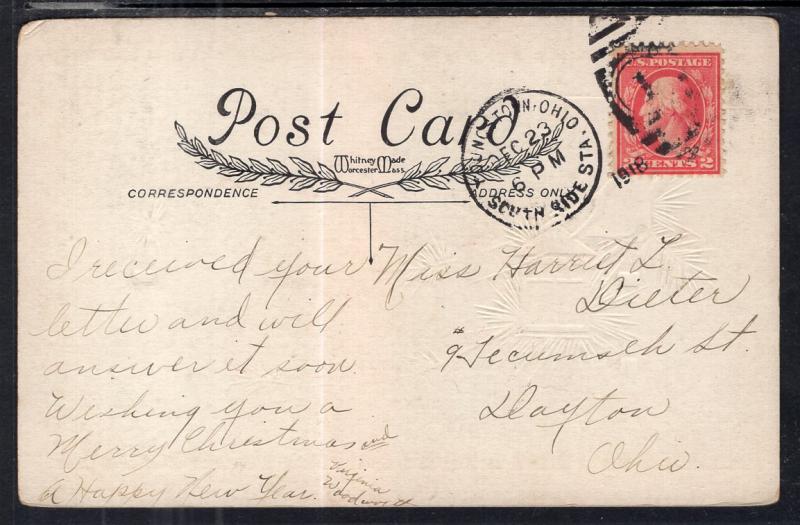 Post Card
Whitney Made
Worcester Mass.
CORRESPONDENCE
ADDRESS ONLY
YOUNGSTOWN, OHIO
DEC 23
6 PM
SOUTH SIDE STA.
1918
U.S. POSTAGE
2 CENTS 2
I received your
letter and will
answer it soon.
Wishing you a
Merry Christmas and
a Happy New Year.
Virginia
Woodworth
Miss Harriet L.
Dieter
#9 Tecumseh St.
Dayton
Ohio.